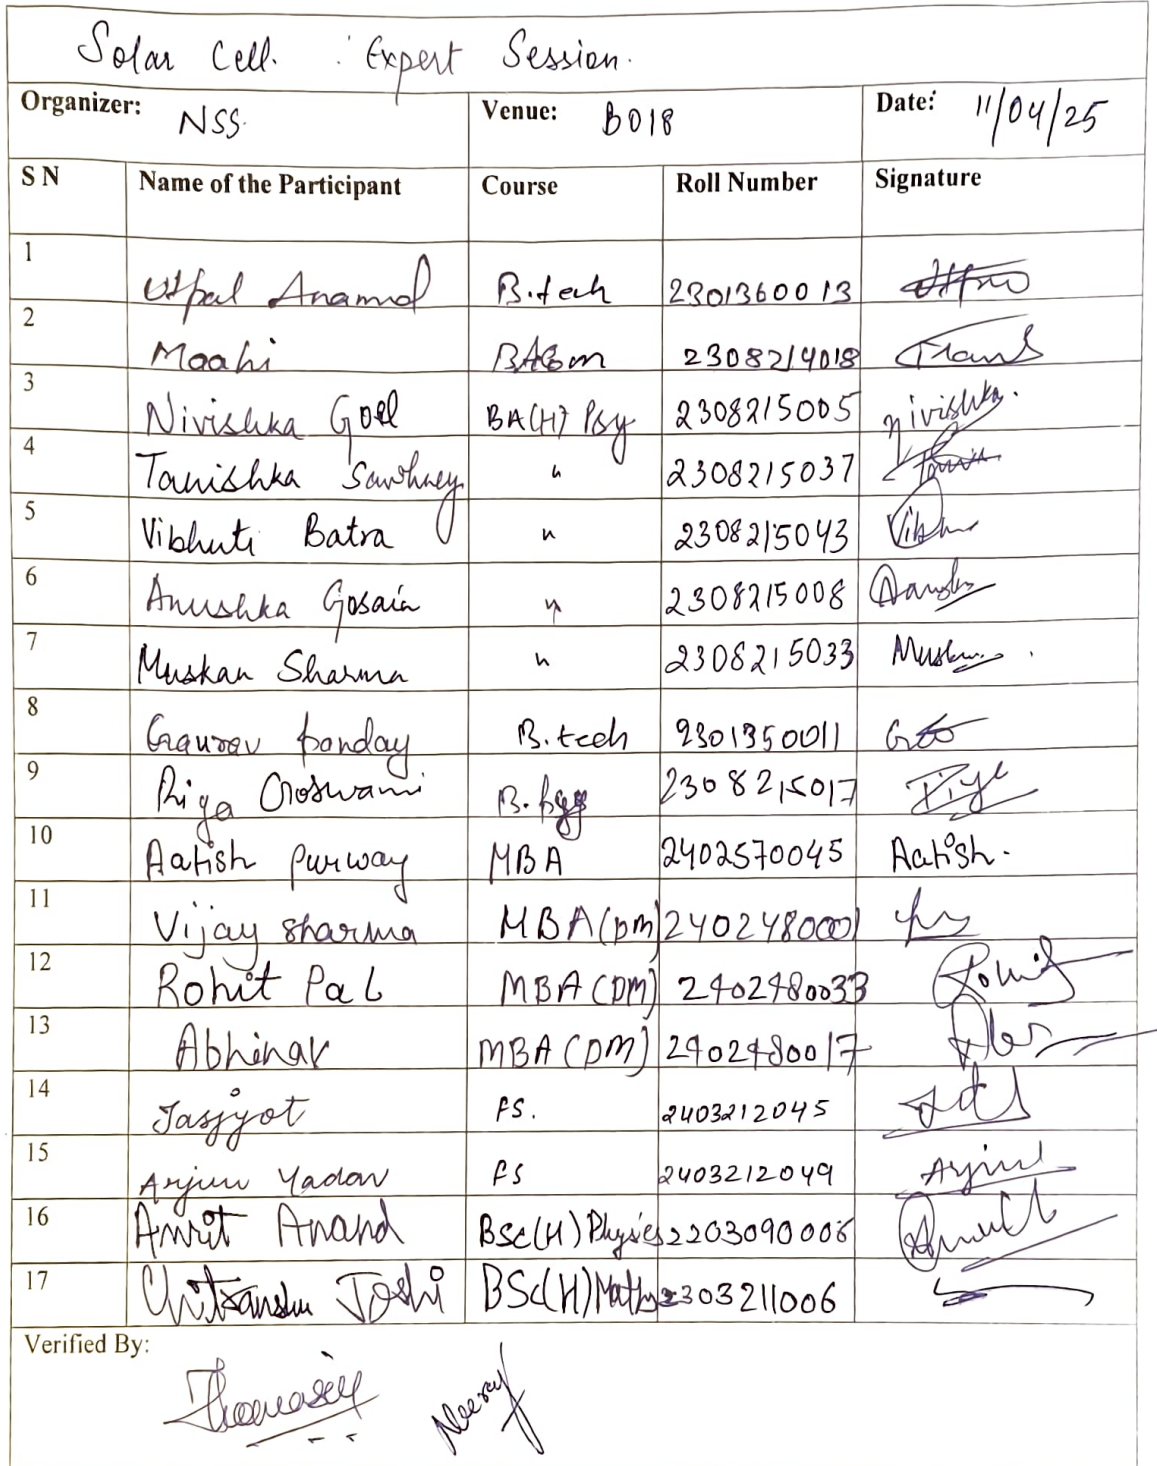 Solar Cell. : Expert Session.
Organizer: NSS. Venue: B018 Date: 11/04/25
S N Name of the Participant Course Roll Number Signature
1 Utpal Anamol B.tech 2301360013
2 Maahi BACom 2308214018
3 Nivishka Goel BA(H) Psy 2308215005 Nivishka.
4 Tanishka Sawhney " 2308215037
5 Vibhuti Batra " 2308215043
6 Anushka Gosain " 2308215008
7 Muskan Sharma " 2308215033
8 Gaurav Panday B.tech 2301350011
9 Priya Goswami 2308215017
10 Aatish Purway MBA 2402570045 Aatish.
11 Vijay Sharma MBA(DM) 2402480001
12 Rohit Pal MBA (DM) 2402480033 Rohit
13 Abhinav MBA (DM) 2402480017
14 Jasjyot FS. 2403212045
15 Arjun Yadav FS 2403212049 Arjun
16 Amrit Anand BSc(H) Physics 2203090006
17 Chitranshu Joshi BSc(H) Maths 2303211006
Verified By:
Neeraj